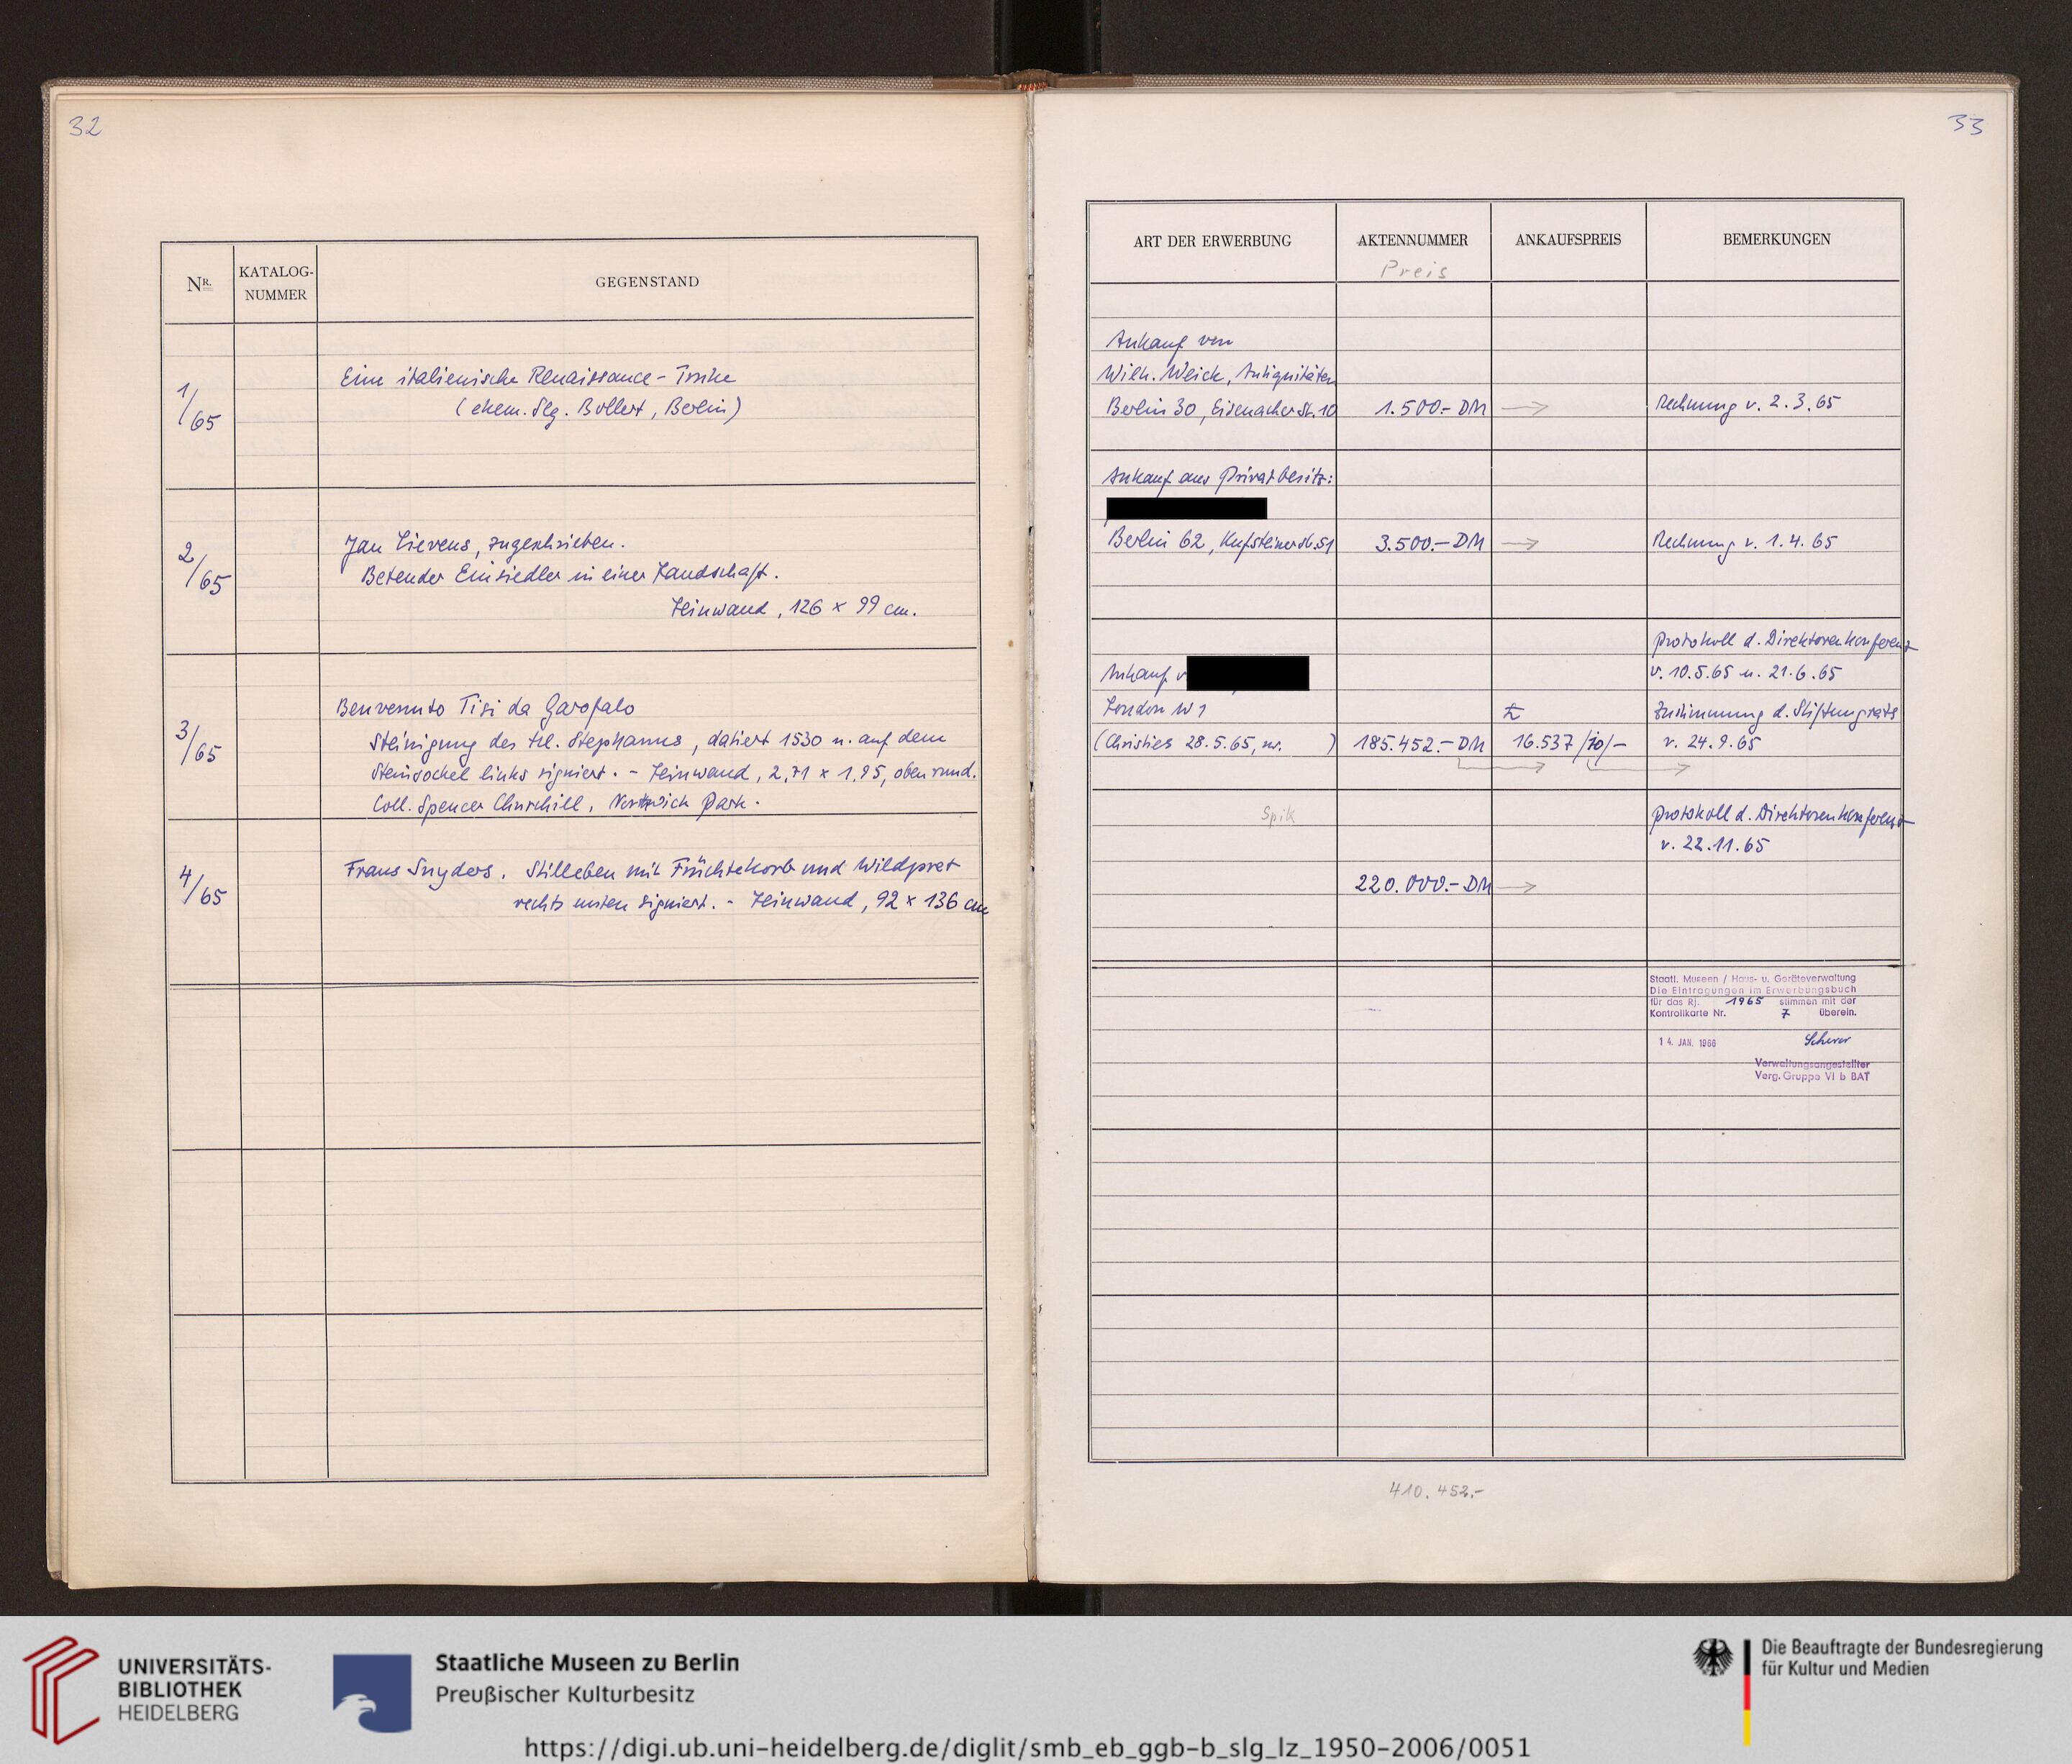 32
NR.
KATALOG-
NUMMER
GEGENSTAND
1/65
Eine italienische Renaissance-Truhe
(ehem. Slg. Bollert, Berlin)
2/65
Jan Lievens, zugeschrieben.
Betender Einsiedler in einer Landschaft.
Leinwand, 126 x 99 cm.
3/65
Benvenuto Tisi da Garofalo
Steinigung des Hl. Stephanus, datiert 1530 u. auf dem
Steinsockel links signiert. - Leinwand, 2,71 x 1,95, oben rund.
Coll. Spencer Churchill, Northwich Park.
4/65
Frans Snyders. Stilleben mit Früchtekorb und Wildpret
rechts unten signiert. - Leinwand, 92 x 136 cm
33
ART DER ERWERBUNG
AKTENNUMMER
Preis
ANKAUFSPREIS
BEMERKUNGEN
Ankauf von
Wilh. Weick, Antiquitäten
Berlin 30, Eisenacher St. 10 1.500.- DM → Rechnung v. 2.3.65
Ankauf aus Privatbesitz:
Berlin 62, Kufsteiner St. 51 3.500.- DM → Rechnung v. 1.4.65
Protokoll d. Direktorenkonferenz
Ankauf v v. 10.5.65 u. 21.6.65
London W1 £ Zustimmung d. Stiftungsrats
(Christies 28.5.65, nr. ) 185.452.- DM 16.537/10/- v. 24.9.65
Spik Protokoll d. Direktorenkonferenz
v. 22.11.65
220.000.- DM →
Staatl. Museen / Haus- u. Geräteverwaltung
Die Eintragungen im Erwerbungsbuch
für das Rj. 1965 stimmen mit der
Kontrollkarte Nr. 7 überein.
14. JAN. 1966 Scherer
Verwaltungsangestellter
Verg. Gruppe VI b BAT
410.452.-
UNIVERSITÄTS-
BIBLIOTHEK
HEIDELBERG
Staatliche Museen zu Berlin
Preußischer Kulturbesitz
Die Beauftragte der Bundesregierung
für Kultur und Medien
https://digi.ub.uni-heidelberg.de/diglit/smb_eb_ggb-b_slg_lz_1950-2006/0051